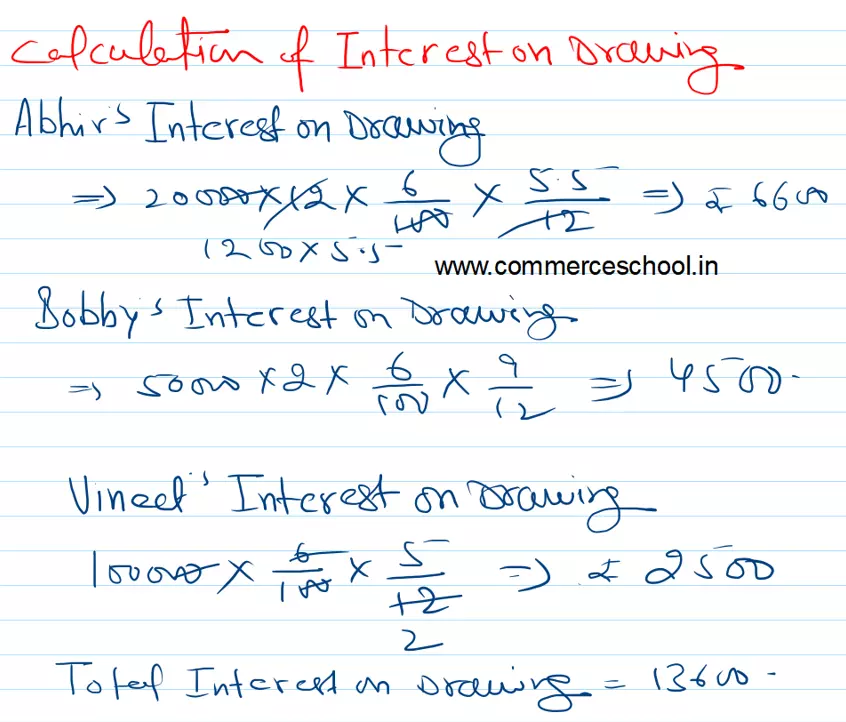 Calculation of Interest on Drawing
Abhir's Interest on Drawing
⇒ 20000 × 12 × 6/100 × 5.5/12 ⇒ ₹ 6600
1200 × 5.5
www.commerceschool.in
Bobby's Interest on Drawing
⇒ 50000 × 2 × 6/100 × 9/12 ⇒ 4500.
Vineet's Interest on Drawing
100000 × 6/100 × 5/12 ⇒ ₹ 2500
2
Total Interest on Drawing = 13600.